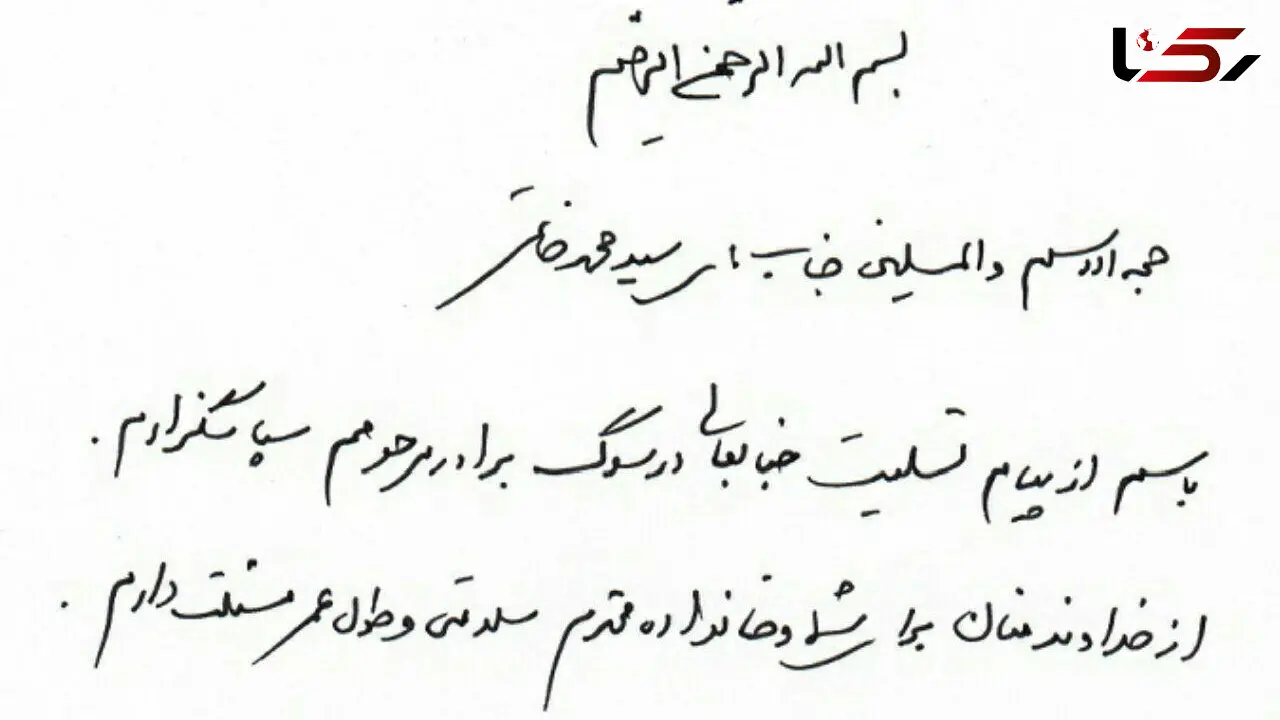 رکنا
بسم الله الرحمن الرحیم
حجه الاسلام والمسلمین جناب آقای سید محمد خاتمی
با سلام از پیام تسلیت جنابعالی در سوگ برادر مرحومم سپاسگزارم.
از خداوند منان برای شما و خانواده محترم سلامتی و طول عمر مسئلت دارم.